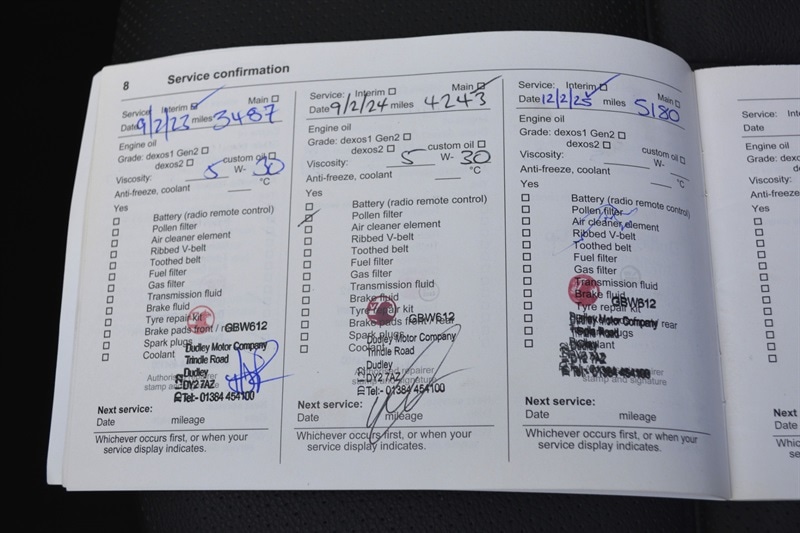 8 Service confirmation
Service: Interim Main
Date 9/2/23 miles 3487
Engine oil
Grade: dexos1 Gen2
dexos2 custom oil
Viscosity: 5 W- 30
Anti-freeze, coolant °C
Yes
Battery (radio remote control)
Pollen filter
Air cleaner element
Ribbed V-belt
Toothed belt
Fuel filter
Gas filter
Transmission fluid
Brake fluid
Tyre repair kit
Brake pads front / rear
Spark plugs
Coolant
GBW612
Dudley Motor Company
Trindle Road
Dudley
DY2 7AZ
Tel:- 01384 454100
stamp and
Next service:
Date mileage
Whichever occurs first, or when your
service display indicates.
Service: Interim Main
Date 9/2/24 miles 4243
Engine oil
Grade: dexos1 Gen2
dexos2 custom oil
Viscosity: 5 W- 30
Anti-freeze, coolant °C
Yes
Battery (radio remote control)
Pollen filter
Air cleaner element
Ribbed V-belt
Toothed belt
Fuel filter
Gas filter
Transmission fluid
Brake fluid
Tyre repair kit
Brake pads front / rear
Spark plugs
Coolant
GBW612
Dudley Motor Company
Trindle Road
Dudley
DY2 7AZ
Tel:- 01384 454100
repairer
stamp and signature
Next service:
Date mileage
Whichever occurs first, or when your
service display indicates.
Service: Interim Main
Date 12/2/25 miles 5180
Engine oil
Grade: dexos1 Gen2
dexos2 custom oil
Viscosity: W-
Anti-freeze, coolant °C
Yes
Battery (radio remote control)
Pollen filter
Air cleaner element
Ribbed V-belt
Toothed belt
Fuel filter
Gas filter
Transmission fluid
Brake fluid
Tyre repair kit
GBW612
Dudley Motor Company
rear
plugs
Coolant
DY2 7AZ
repairer
stamp and signature
Next service:
Date mileage
Whichever occurs first, or when your
service display indicates.
Service: Inte
Date
Engine oil
Grade: dexos
Viscosity:
Anti-freeze
Yes
Next
Date
Whic
se